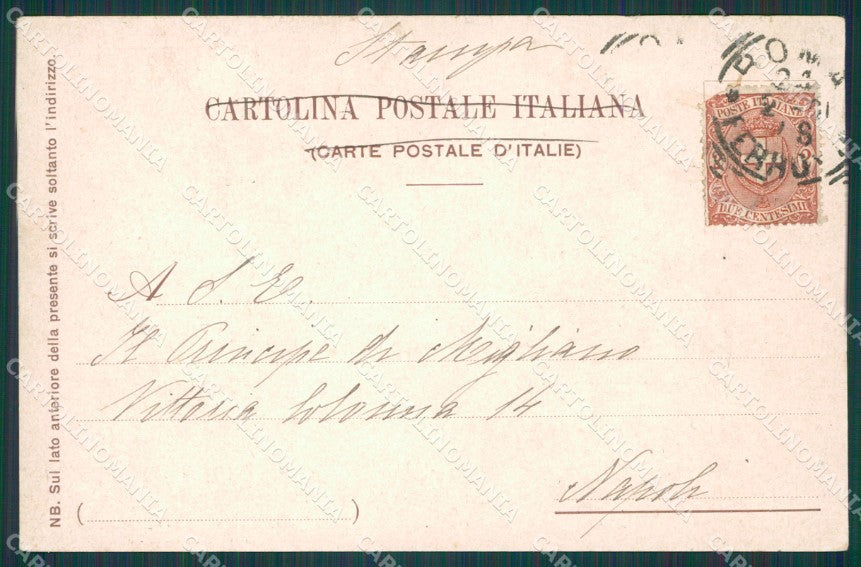 Stampa
CARTOLINA POSTALE ITALIANA
(CARTE POSTALE D'ITALIE)
POSTE ITALIANE
DUE CENTESIMI
ROMA
24
2
8
FERROVIA
A S. E.
Il Principe di Migliano
Vittoria Colonna 14
Napoli
NB. Sul lato anteriore della presente si scrive soltanto l'indirizzo.
CARTOLINOMANIA